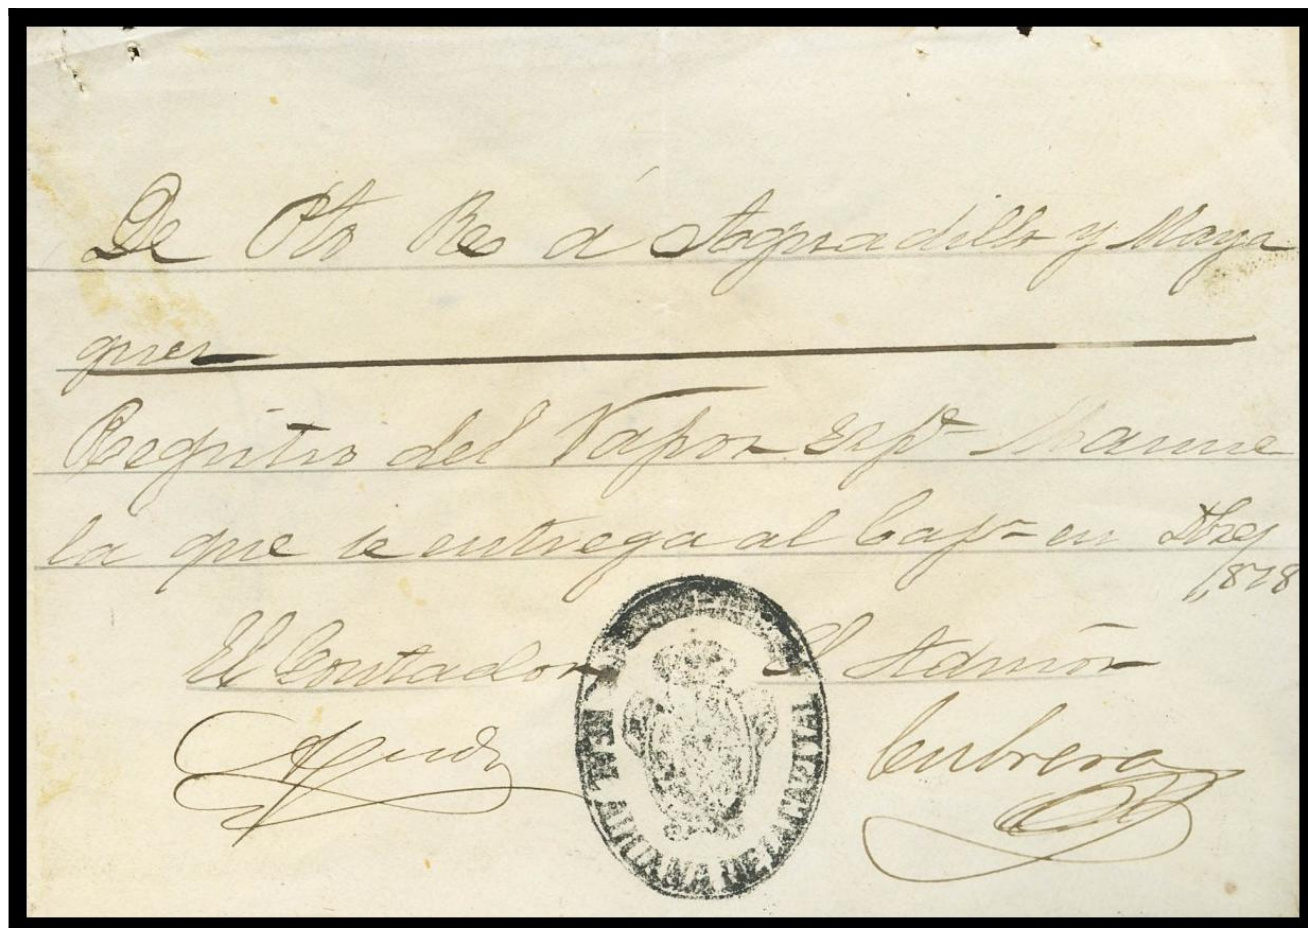 De Pto Rco á Aguadilla y Maya
guez
Registro del Vapor Espl Manue
la que se entrega al Capn en Dbre
1878
El Contador El Admor
REAL ADUANA DE LA CAPITAL
Cubrera